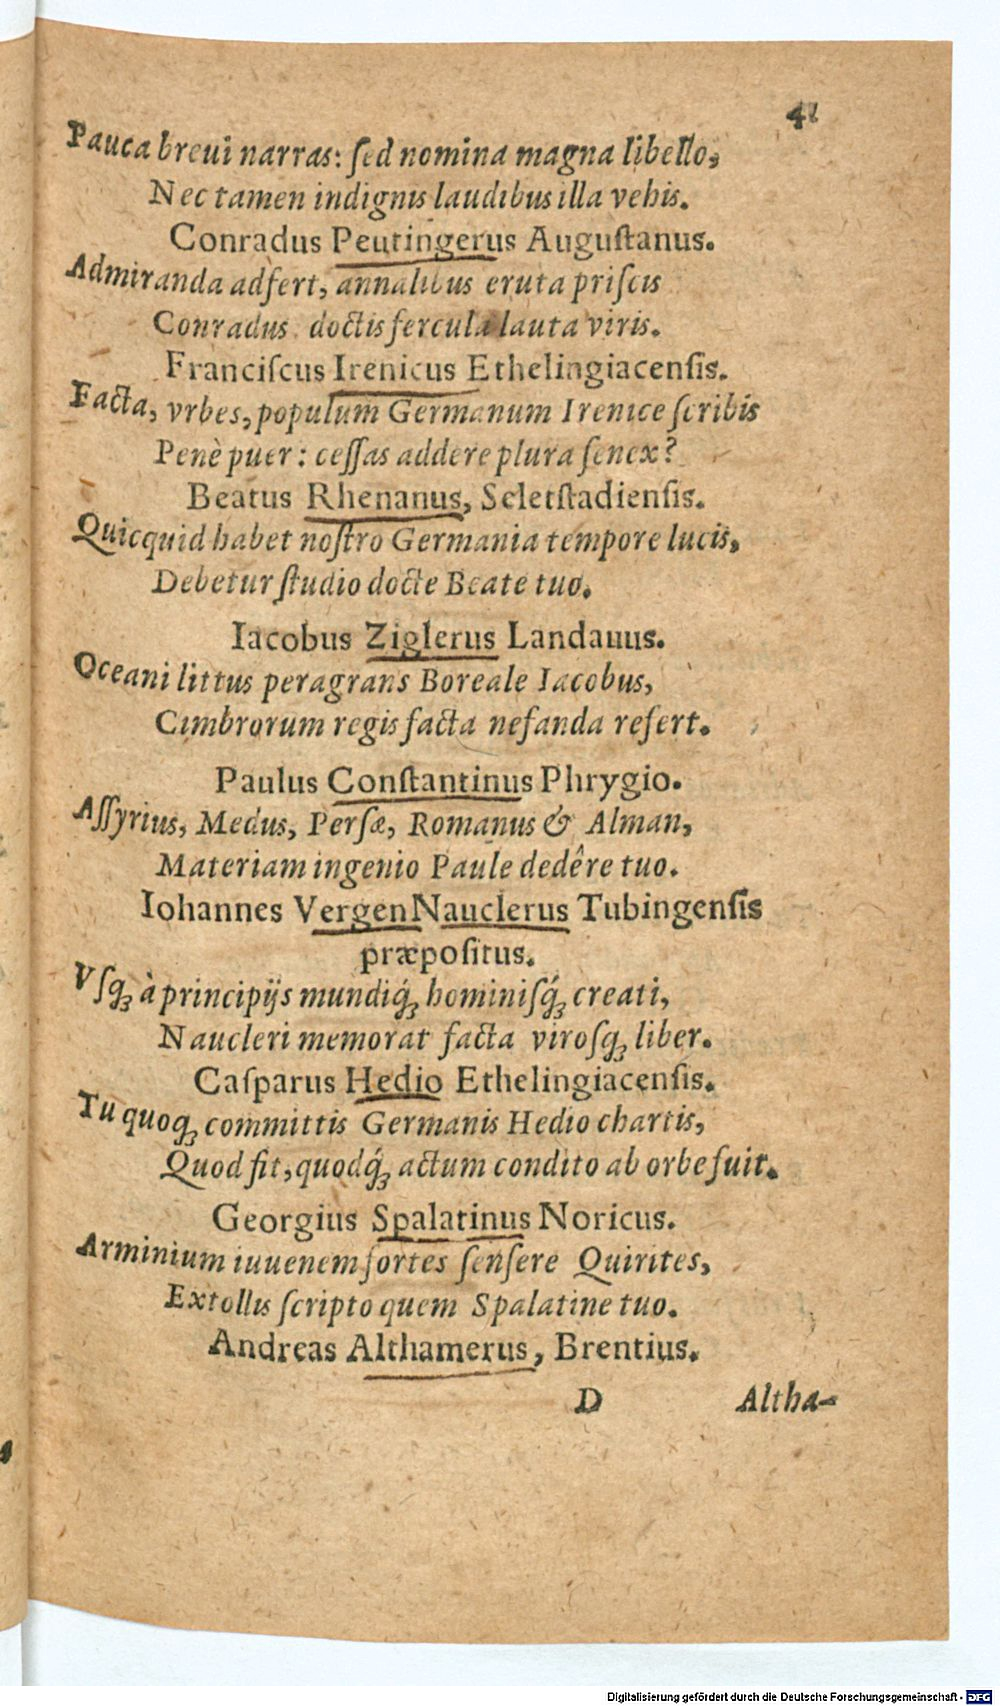 41
Pauca breui narras: ſed nomina magna libello,
Nec tamen indignis laudibus illa vehis.
Conradus Peutingerus Auguſtanus.
Admiranda adfert, annalibus eruta priſcis
Conradus doctis fercula lauta viris.
Franciſcus Irenicus Ethelingiacenſis.
Facta, vrbes, populum Germanum Irenice ſcribis
Penè puer: ceſſas addere plura ſenex?
Beatus Rhenanus, Seletſtadienſis.
Quicquid habet noſtro Germania tempore lucis,
Debetur ſtudio docte Beate tuo.
Iacobus Ziglerus Landauus.
Oceani littus peragrans Boreale Iacobus,
Cimbrorum regis facta nefanda refert.
Paulus Conſtantinus Phrygio.
Aſſyrius, Medus, Perſæ, Romanus & Alman,
Materiam ingenio Paule dedêre tuo.
Iohannes Vergen Nauclerus Tubingenſis
præpoſitus.
Vſq́ꝫ à principijs mundiq́ꝫ hominiſq́ꝫ creati,
Naucleri memorat facta viroſqꝫ liber.
Caſparus Hedio Ethelingiacenſis.
Tu quoqꝫ committis Germanis Hedio chartis,
Quod fit, quodq́ꝫ actum condito ab orbe fuit.
Georgius Spalatinus Noricus.
Arminium iuuenem fortes ſenſere Quirites,
Extollis ſcripto quem Spalatine tuo.
Andreas Althamerus, Brentius.
D Altha-
Digitalisierung gefördert durch die Deutsche Forschungsgemeinschaft - DFG